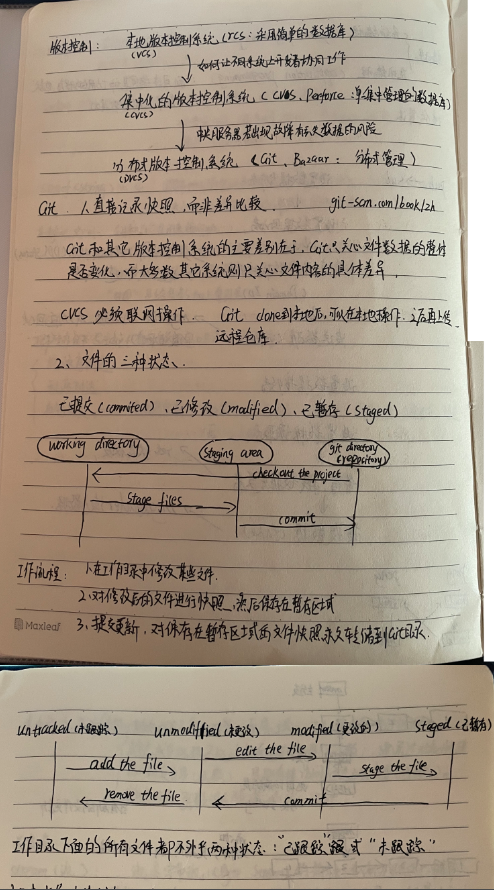 版本控制： 本地版本控制系统 (rcs：采用简单的数据库)
(VCS)
如何让不同系统上开发者协同工作
集中化的版本控制系统 (CVS、Perforce：单集中管理的数据库)
(CVCS)
中央服务器若出现故障有丢失数据的风险
分布式版本控制系统 (Git、Bazaar： 分布式管理)
(DVCS)
Git 1、直接记录快照，而非差异比较 git-scm.com/book/zh
Git和其它版本控制系统的主要差别在于，Git只关心文件数据的整体
是否变化，而大多数其它系统则只关心文件内容的具体差异。
CVCS 必须联网操作 Git clone到本地后，可以在本地操作，之后再上传
远程仓库
2、文件的三种状态、
已提交(commited)、已修改(modified)、已暂存(staged)
working directory staging area git directory
(repository)
checkout the project
stage files
commit
工作流程： 1、在工作目录中修改某些文件.
2、对修改后的文件进行快照，然后保存在暂存区域
3、提交更新，对保存在暂存区域的文件快照永久转储到Git目录.
Maxleaf
untracked (未跟踪) unmodified (未更改) modified (更改的) staged (已暂存)
edit the file
add the file stage the file
remove the file commit
工作目录下面的所有文件都不外乎两种状态："已跟踪"或 "未跟踪"